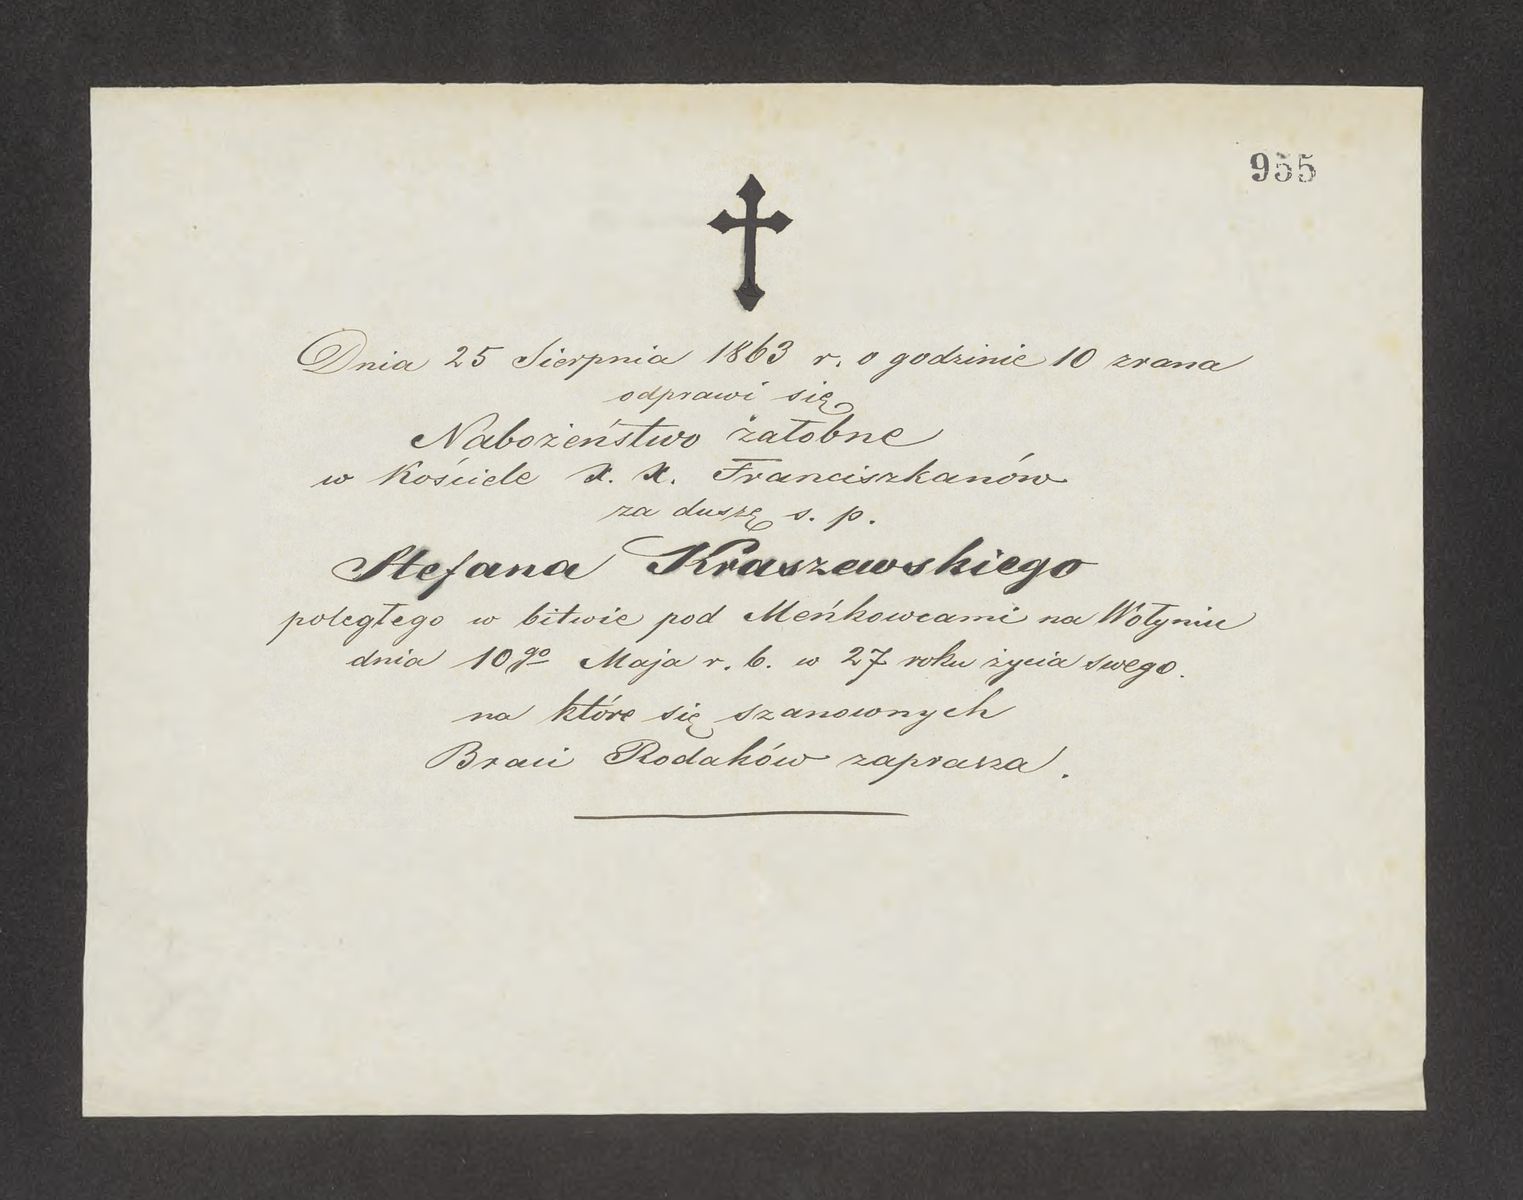 955
Dnia 25 Sierpnia 1863 r. o godzinie 10 zrana
odprawi się
Nabożeństwo żałobne
w Kościele X. X. Franciszkanów
za duszę s. p.
Stefana Kraszewskiego
poległego w bitwie pod Meńkowcami na Wołyniu
dnia 10go Maja r. b. w 27 roku życia swego.
na które się szanownych
Braci Rodaków zaprasza.